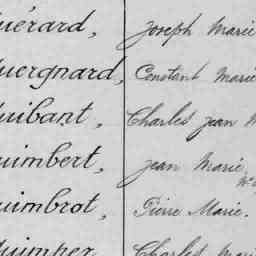 uérard, Joseph Marie
uergnard, Constant Marie
uibant, Charles Jean M
uimbert, Jean Marie
uimbrot, Pierre Marie.
uimper Charles Mari